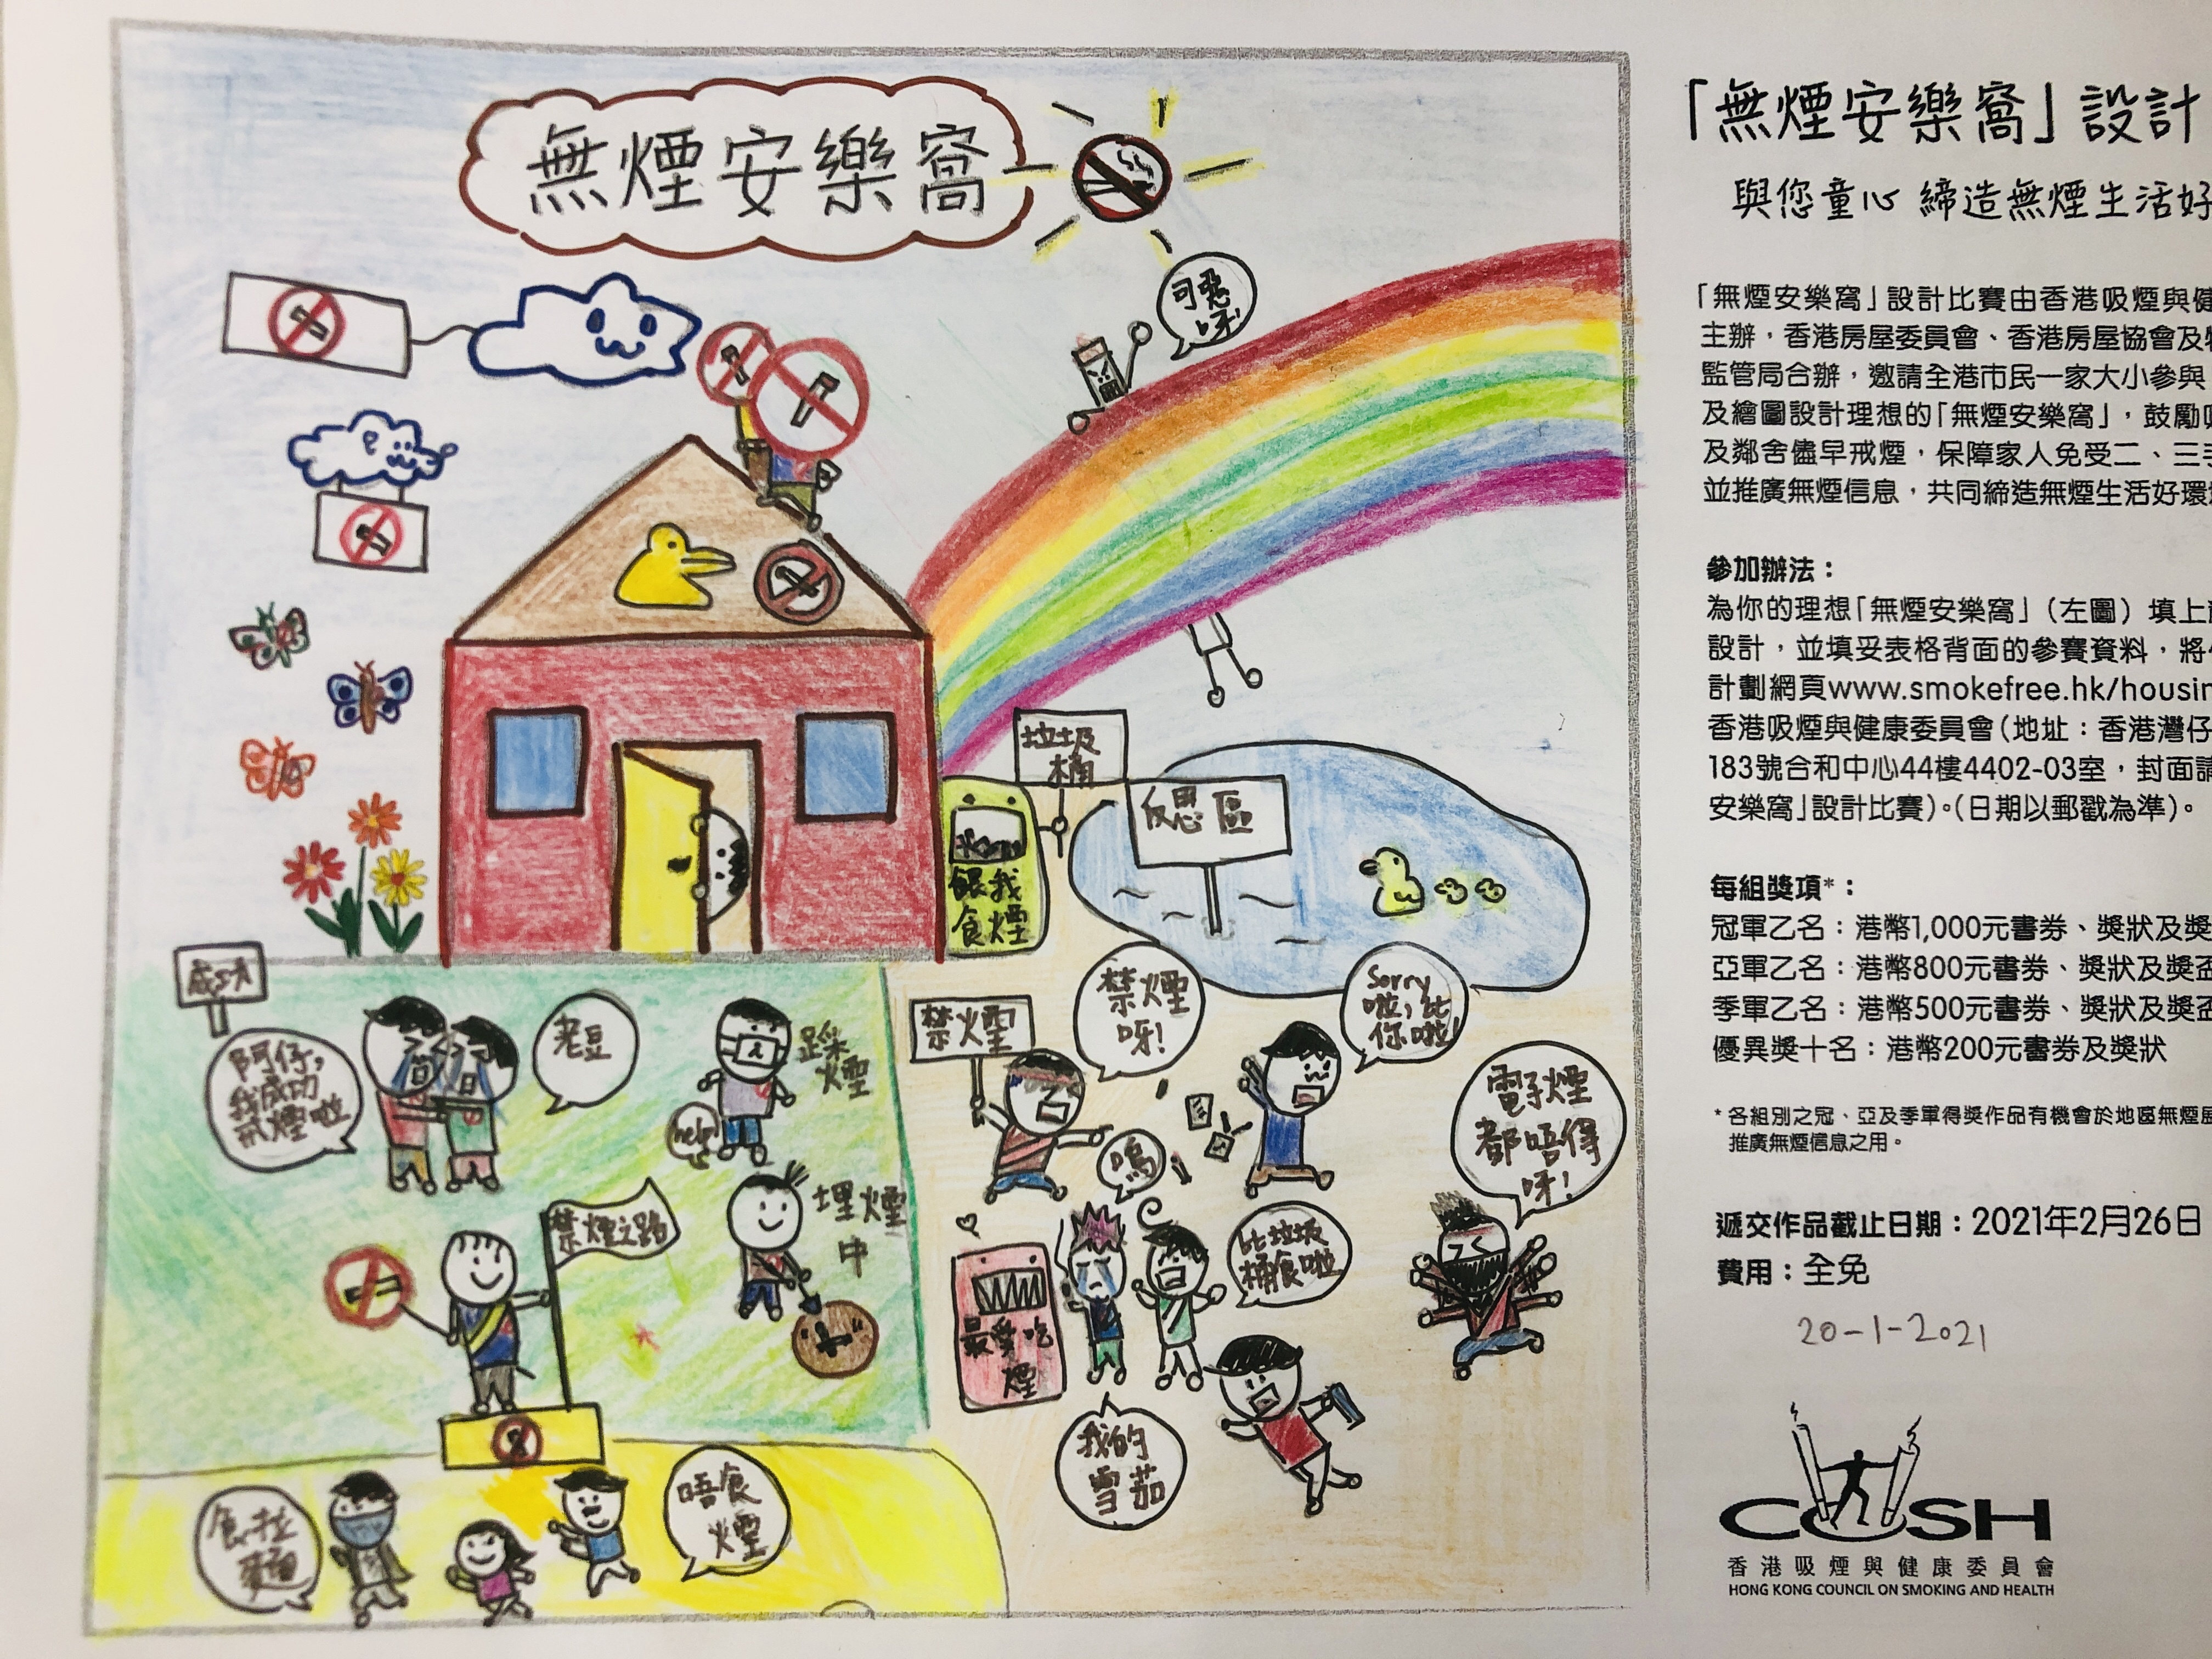 無煙安樂窩
可惡
呀!
垃圾
桶
反思區
餵我
食煙
成功
阿仔,
我成功
戒煙啦
老豆
踩
煙
help!
禁煙
禁煙
呀!
Sorry
啦,比
你啦!
電子煙
都唔得
呀!
嗚
禁煙之路
埋煙
中
最愛吃
煙
比垃圾
桶食啦
我的
雪茄
食拉
麵
唔食
煙
「無煙安樂窩」設計
與您童心 締造無煙生活好
「無煙安樂窩」設計比賽由香港吸煙與健
主辦，香港房屋委員會、香港房屋協會及物
監管局合辦，邀請全港市民一家大小參與
及繪圖設計理想的「無煙安樂窩」，鼓勵吸
及鄰舍儘早戒煙，保障家人免受二、三手
並推廣無煙信息，共同締造無煙生活好環
參加辦法：
為你的理想「無煙安樂窩」（左圖）填上
設計，並填妥表格背面的參賽資料，將
計劃網頁www.smokefree.hk/housin
香港吸煙與健康委員會（地址：香港灣仔
183號合和中心44樓4402-03室，封面請
安樂窩」設計比賽）。（日期以郵戳為準）。
每組獎項*：
冠軍乙名：港幣1,000元書券、獎狀及獎
亞軍乙名：港幣800元書券、獎狀及獎盃
季軍乙名：港幣500元書券、獎狀及獎盃
優異獎十名：港幣200元書券及獎狀
* 各組別之冠、亞及季軍得獎作品有機會於地區無煙
推廣無煙信息之用。
遞交作品截止日期：2021年2月26日
費用：全免
20-1-2021
COSH
香港吸煙與健康委員會
HONG KONG COUNCIL ON SMOKING AND HEALTH